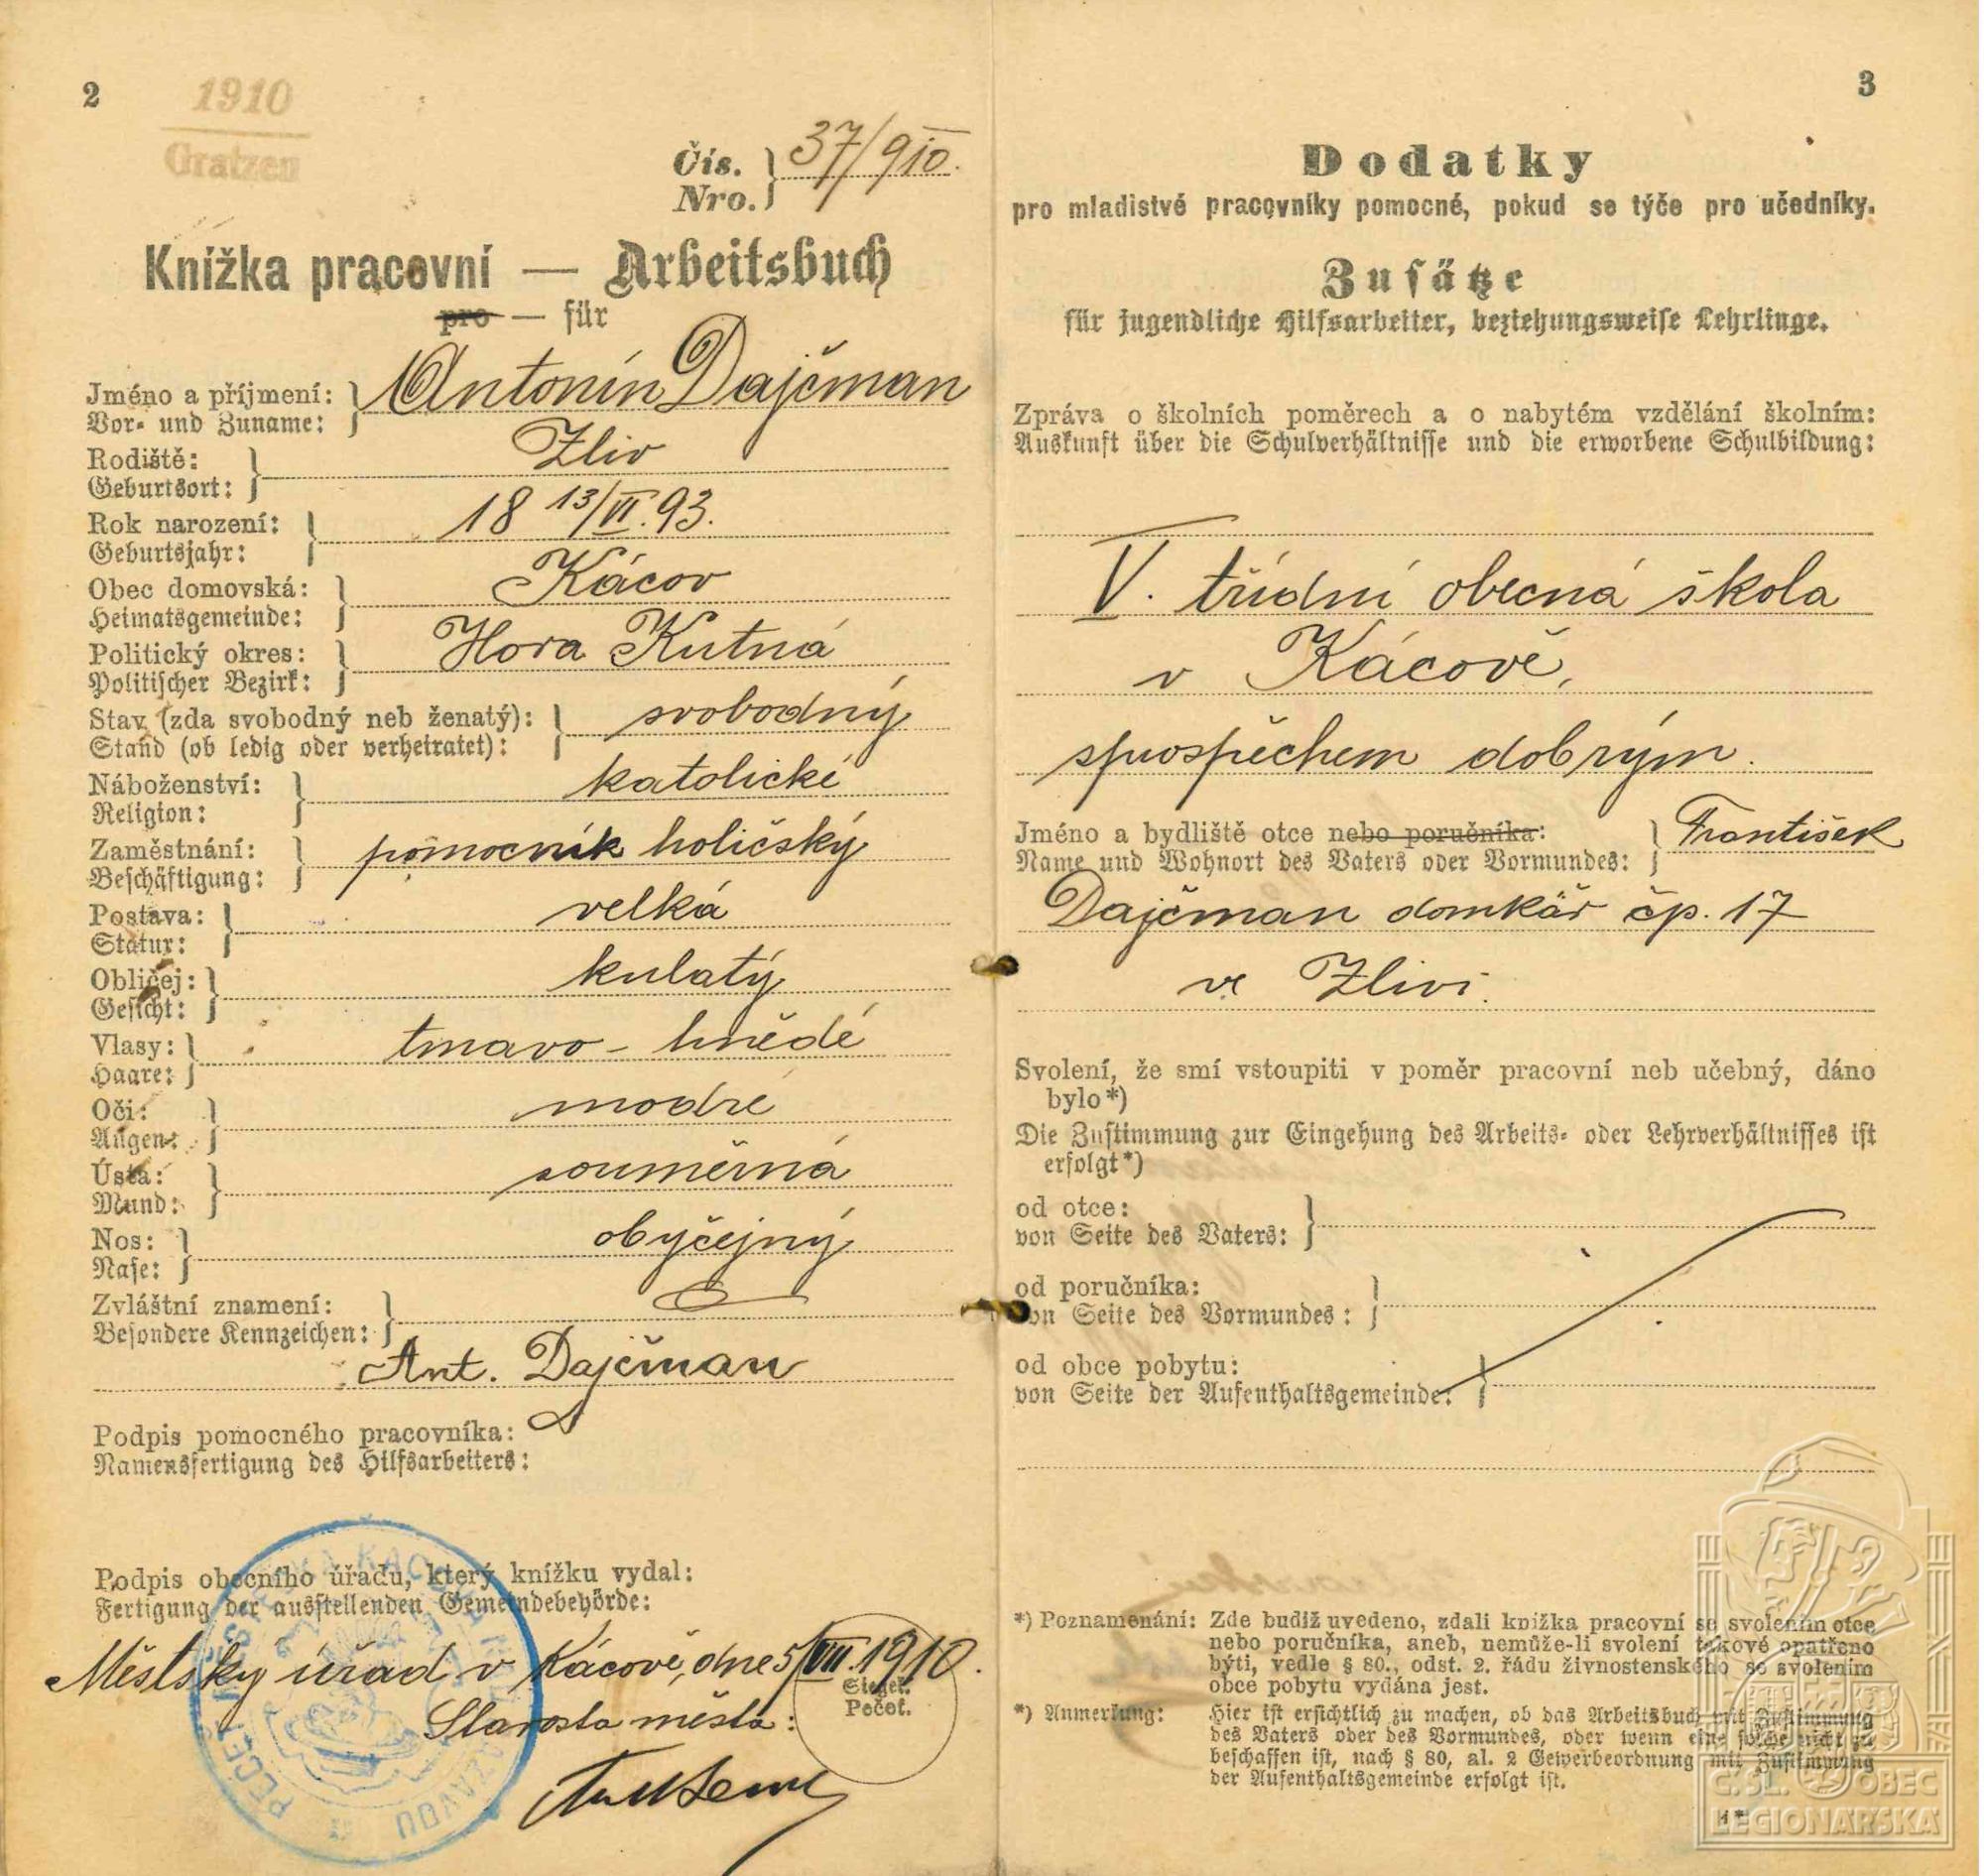 2
1910
Gratzen
Čís.
Nro.
37/910.
Knížka pracovní — Arbeitsbuch
pro — für
Jméno a příjmení:
Vor- und Zuname:
Antonín Dajčman
Rodiště:
Geburtsort:
Zliv
Rok narození:
Geburtsjahr:
18 13/VI. 93.
Obec domovská:
Heimatsgemeinde:
Kácov
Politický okres:
Politischer Bezirk:
Hora Kutná
Stav (zda svobodný neb ženatý):
Stand (ob ledig oder verheiratet):
svobodný
Náboženství:
Religion:
katolické
Zaměstnání:
Beschäftigung:
pomocník holičský
Postava:
Statur:
velká
Obličej:
Gesicht:
kulatý
Vlasy:
Haare:
tmavo-hnědé
Oči:
Augen:
modré
Ústa:
Mund:
souměrná
Nos:
Nase:
obyčejný
Zvláštní znamení:
Besondere Kennzeichen:
Ant. Dajčman
Podpis pomocného pracovníka:
Namensfertigung des Hilfsarbeiters:
Podpis obecního úřadu, který knížku vydal:
Fertigung der ausstellenden Gemeindebehörde:
Městský úřad v Kácově, dne 5/VII. 1910.
Siegel.
Pečeť.
Starosta města:
3
Dodatky
pro mladistvé pracovníky pomocné, pokud se týče pro učedníky.
Zusätze
für jugendliche Hilfsarbeiter, beziehungsweise Lehrlinge.
Zpráva o školních poměrech a o nabytém vzdělání školním:
Auskunft über die Schulverhältnisse und die erworbene Schulbildung:
V. třídní obecná škola
v Kácově,
s prospěchem dobrým.
Jméno a bydliště otce nebo poručníka:
Name und Wohnort des Vaters oder Vormundes:
František
Dajčman domkář čp. 17
ve Zlivi.
Svolení, že smí vstoupiti v poměr pracovní neb učebný, dáno
bylo*)
Die Zustimmung zur Eingehung des Arbeits- oder Lehrverhältnisses ist
erfolgt*)
od otce:
von Seite des Vaters:
od poručníka:
von Seite des Vormundes:
od obce pobytu:
von Seite der Aufenthaltsgemeinde:
*) Poznamenání: Zde budiž uvedeno, zdali knížka pracovní se svolením otce
nebo poručníka, aneb, nemůže-li svolení takové opatřeno
býti, vedle § 80., odst. 2. řádu živnostenského se svolením
obce pobytu vydána jest.
*) Anmerkung: Hier ist ersichtlich zu machen, ob das Arbeitsbuch mit Zustimmung
des Vaters oder des Vormundes, oder wenn eine solche nicht zu
beschaffen ist, nach § 80, al. 2 Gewerbeordnung mit Zustimmung
der Aufenthaltsgemeinde erfolgt ist.
1*
Č.SL. OBEC
LEGIONÁŘSKÁ